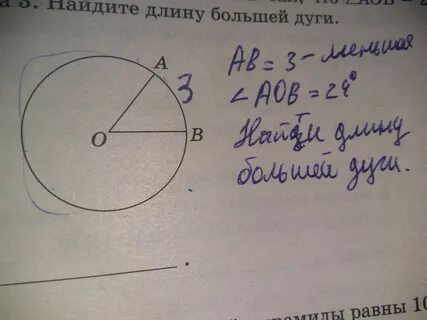 3. Найдите длину большей дуги.
A
3
O
B
AB = 3 - меньшая
∠AOB = 24°
Найти длину
большей дуги.
равны 10